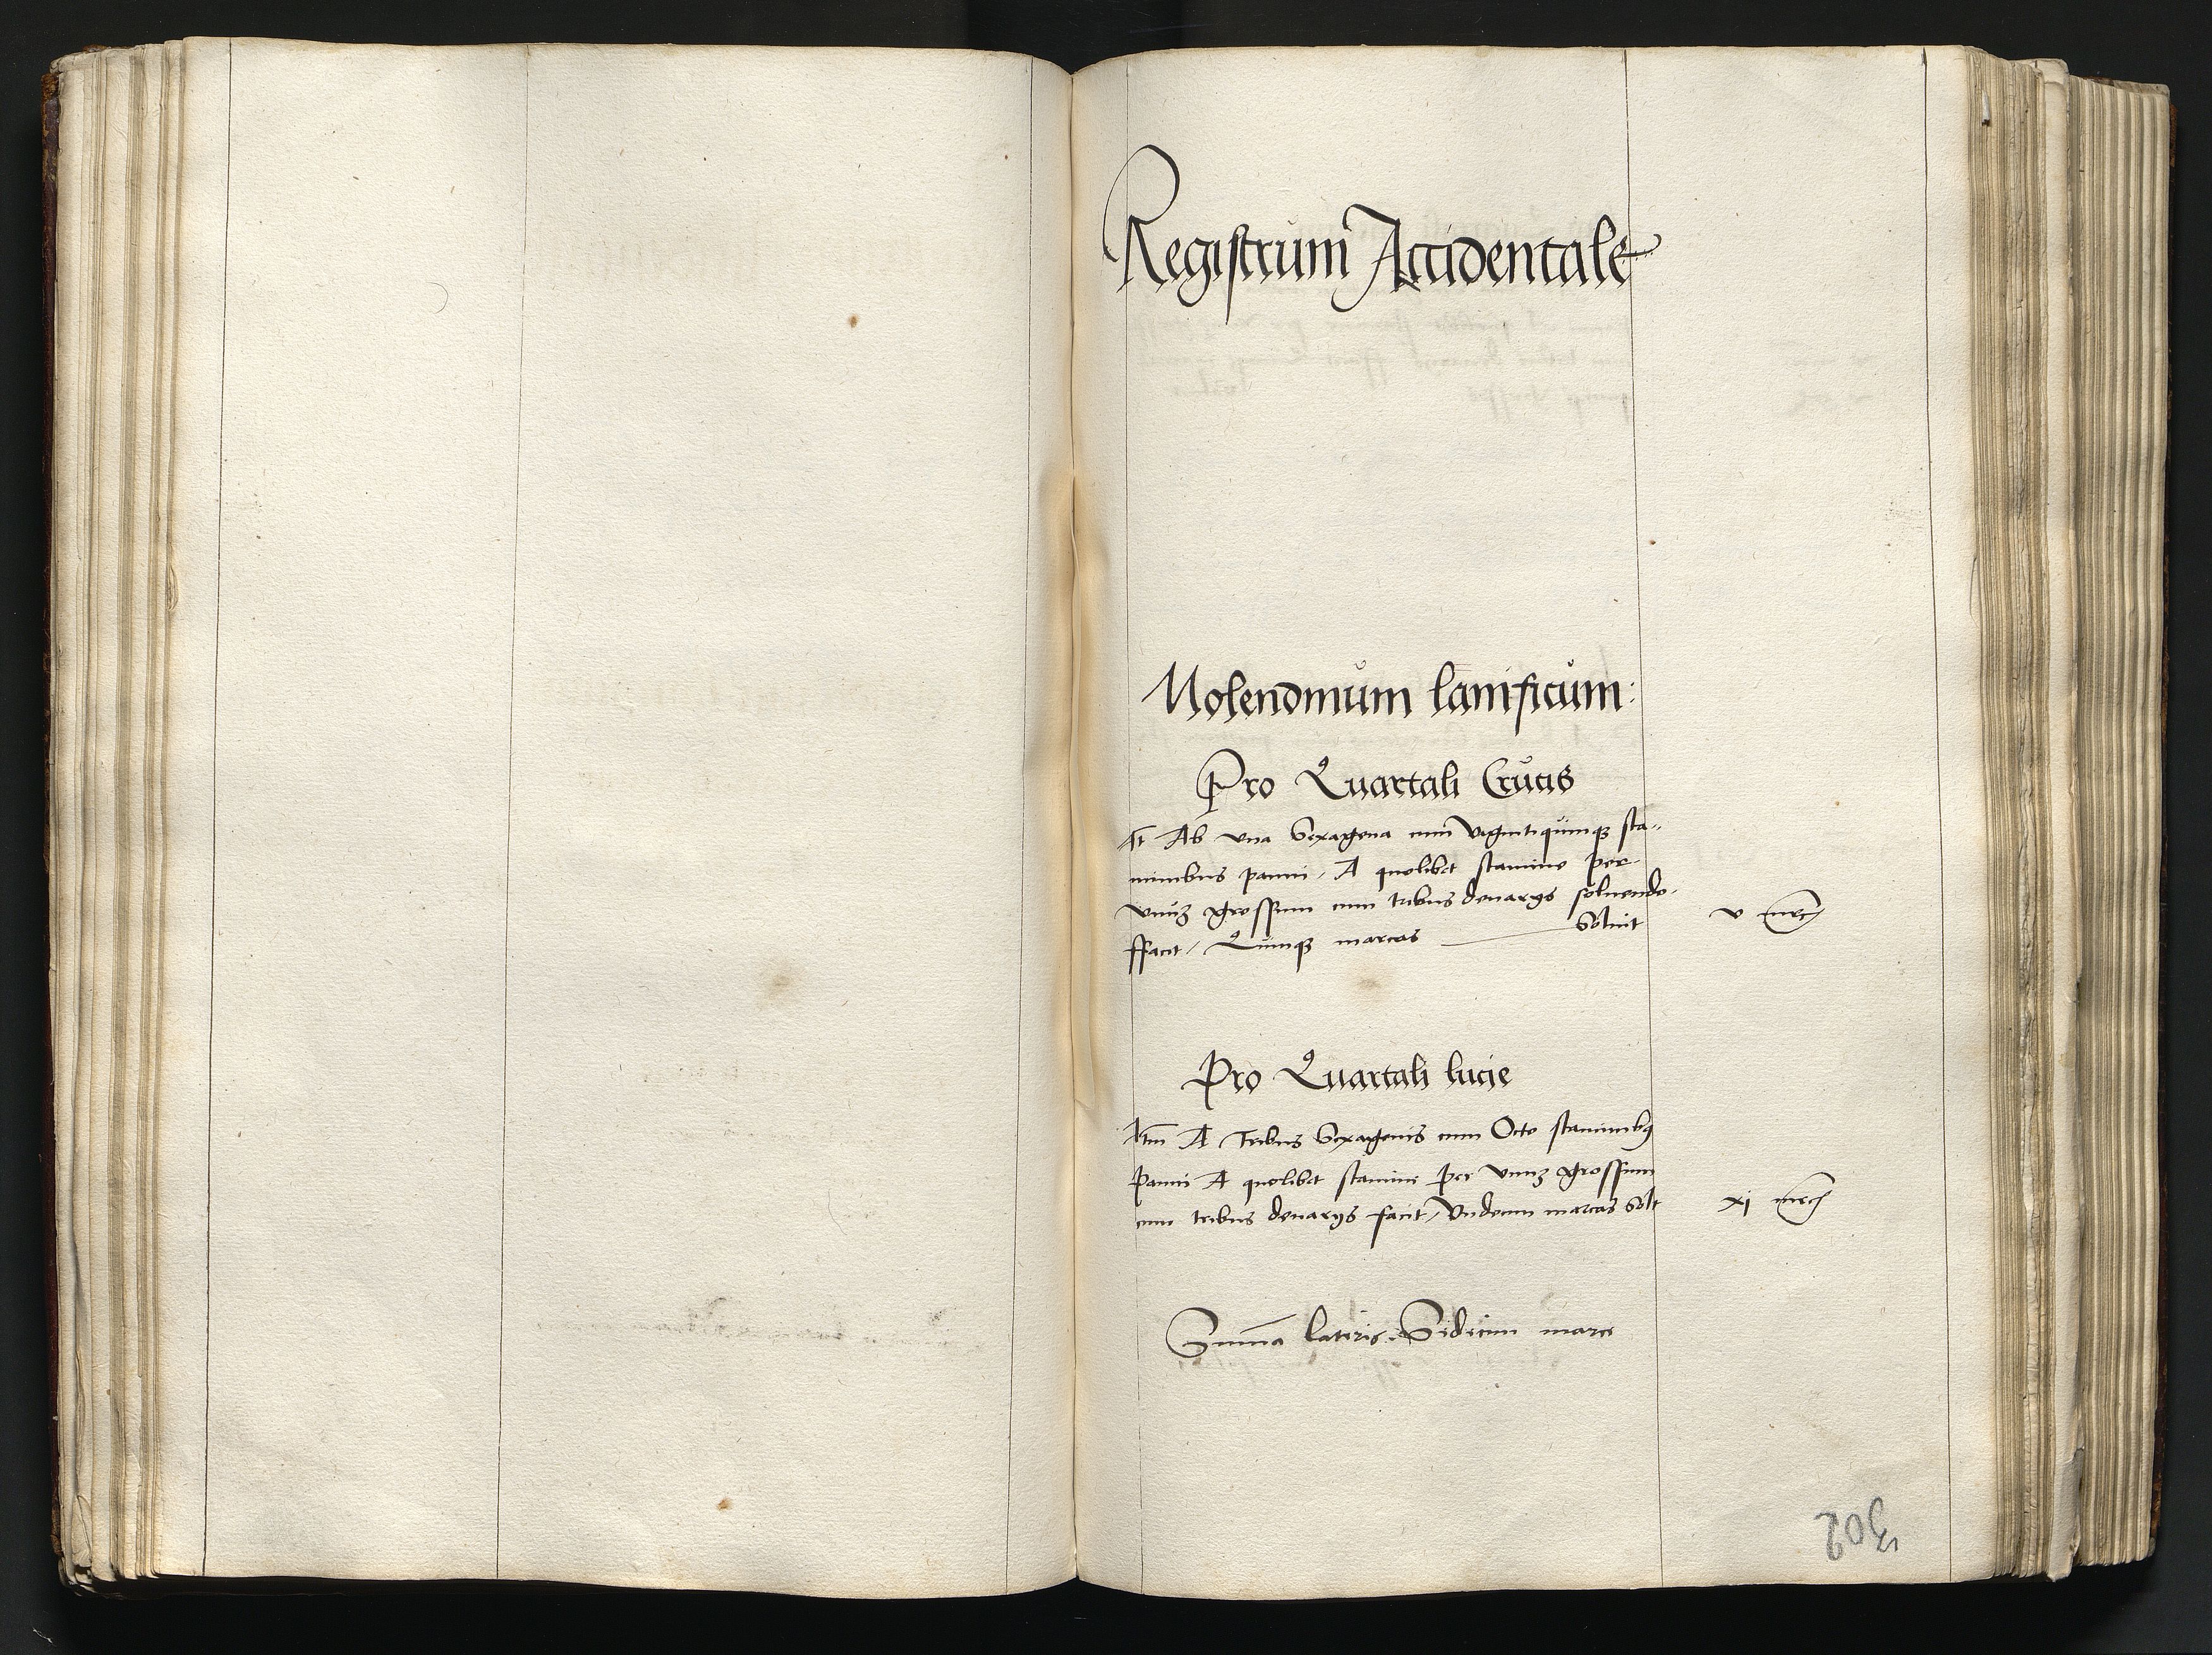 Registrum Accidentale
Molendinum lanificum:
Pro Quartali Crucis
It Ab vna Sexagena cum vigintiquinqꝫ sta-
minibus panni, A quolibet stamine per
vnuꝫ grossum cum tribus denarijs soluendo
ffacit, Quinqꝫ marcas Soluit v mrc
Pro Quartali lucie
Itm A Tribus Sexagenis cum Octo staminibꝫ
Panni A quolibet stamine per vnuꝫ grossum
cum tribus denarijs facit, Vndecim marcas Solt xj mrc
Summa lateris Sedecim marc
302